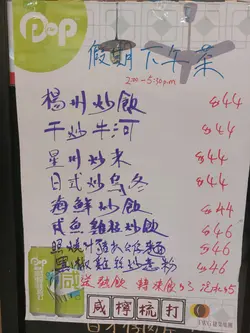 PoP
假期下午茶
2:00-5:30pm
揚州炒飯 $44
干炒牛河 $44
星川炒米 $44
日式炒烏冬 $44
海鮮炒飯 $44
咸魚雞粒炒飯 $46
照燒汁豬扒公仔麵 $46
黑椒雞絲炒意粉 $46
PoP
送熱飲 轉凍飲$3 汽水$5
咸檸梳打